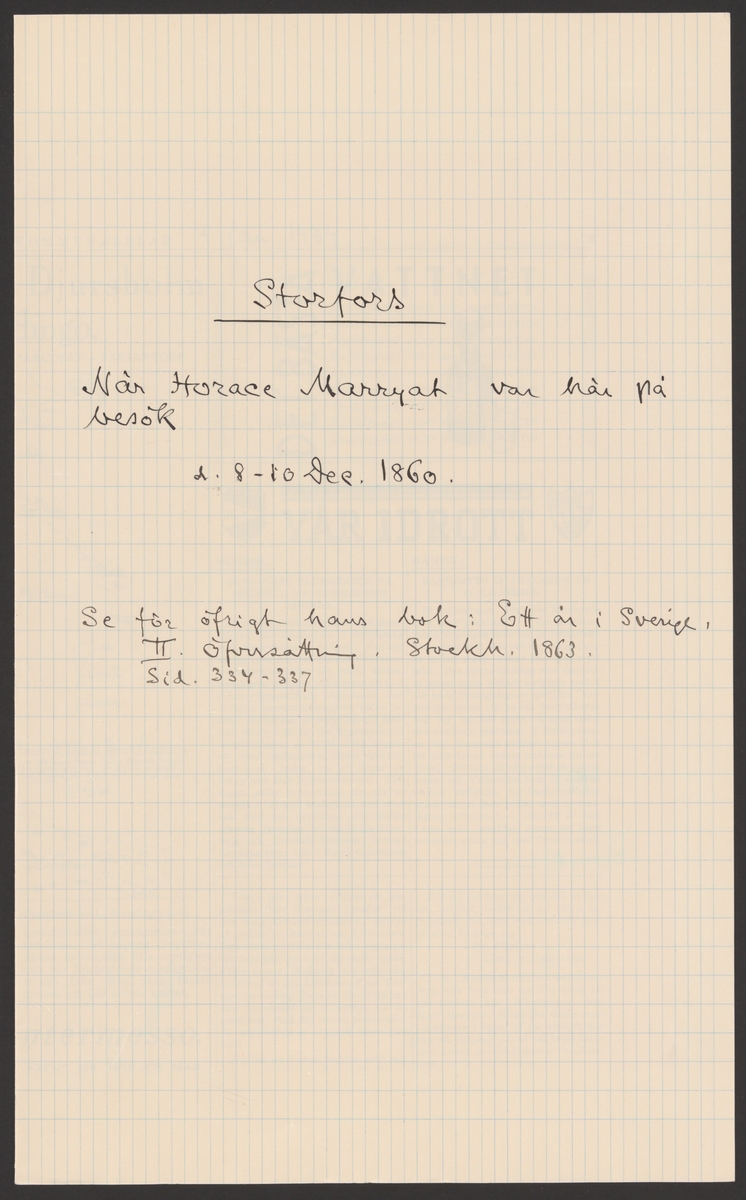 Storfors
När Horace Marryat var här på
besök
d. 8-10 Dec. 1860.
Se för öfrigt hans bok: Ett år i Sverige,
II. Öfversättning. Stockh. 1863.
Sid. 334-337